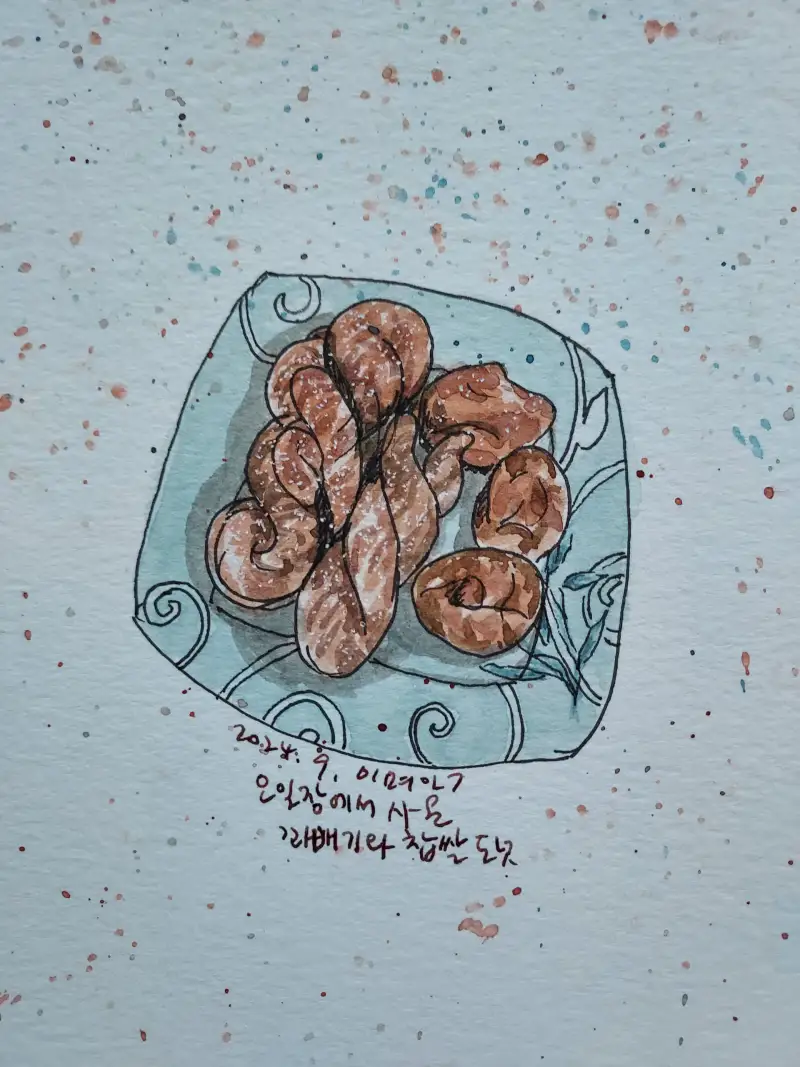 2024. 9. 이명아
오일장에서 사온
꽈배기와 찹쌀 도넛